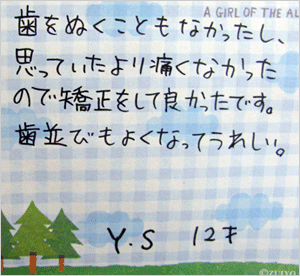 A GIRL OF THE AL
歯をぬくこともなかったし、
思っていたより痛くなかった
ので矯正をして良かったです。
歯並びもよくなってうれしい。
Y.S 12才
©ZUIYO